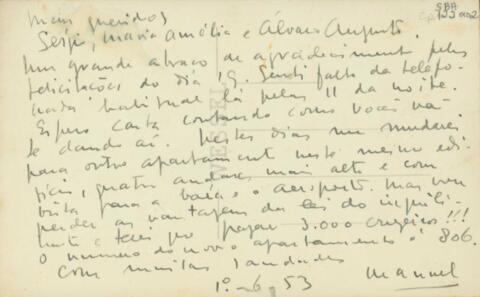 SBA
Cp 133 doc 2
Meus queridos
Sergio, Maria Amélia e Álvaro Augusto.
Um grande abraço de agradecimento pelas
felicitações do dia 19. Senti falta da telefo-
nada habitual lá pelas 11 da noite.
Espero carta contando como vocês vão
se dando aí. Nestes dias me mudarei
para outro apartamento neste mesmo edi-
fício, quatro andares mais alto e com
vista para a baía e o aeroporto. Mas vou
perder as vantagens da lei do inquili-
nato e terei que pagar 3.000 cruzeiros!!!
O número do novo apartamento é 806.
Com muitas saudades
Manuel
1º-6.53